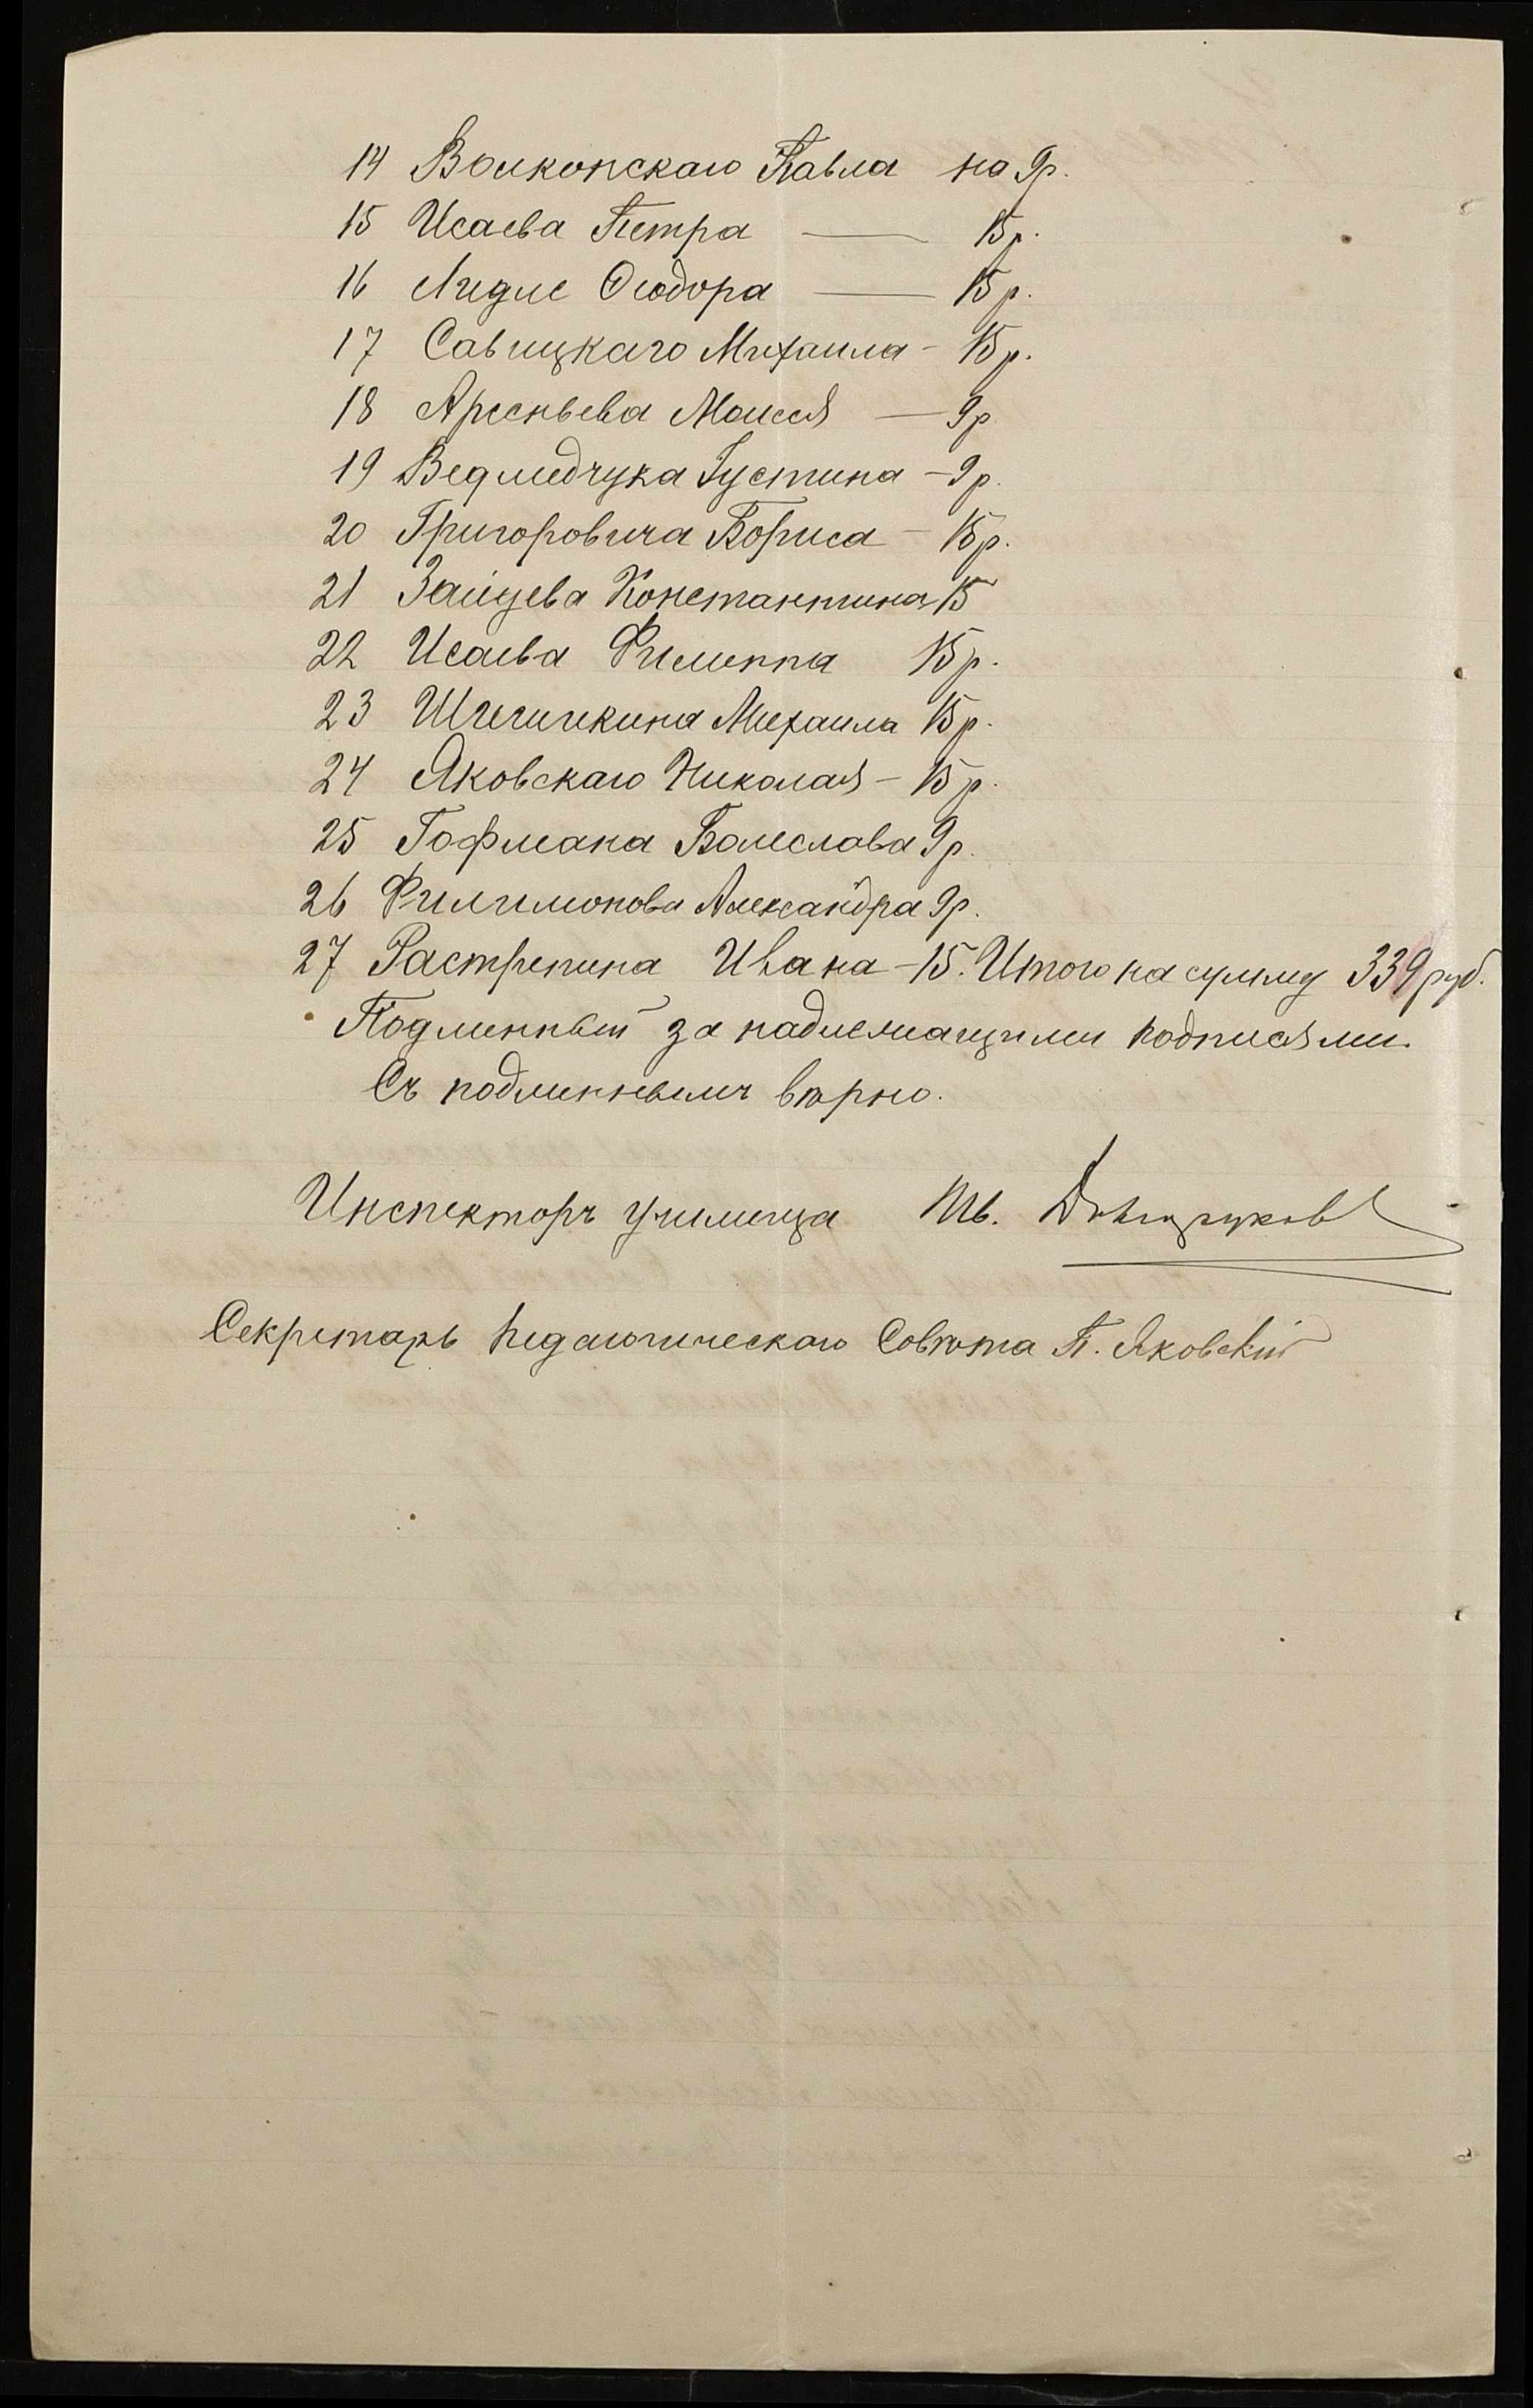 14 Волконскаго Павла на 9р.
15 Исаева Петра — 15 р.
16 Лидле Ѳеодора — 15 р.
17 Савицкаго Михаила - 15 р.
18 Арсеньева Моисея — 9р
19 Ведмедчука Густина - 9 р.
20 Григоровича Бориса - 15 р.
21 Зайцева Константина 15
22 Исаева Филиппа 15 р.
23 Михаила 15 р.
24 Яковскаго Николая - 15 р.
25 Гофмана Болеслава 9 р.
26 Филимонова Александра 9р.
27 Растрепина Ивана - 15. Итого на сумму 339 руб.
Подлинный за надлежащими подписями.
Съ подлиннымъ вѣрно.
Инспекторъ училища
Секретарь Педагогическаго Совѣта П. Яковскій